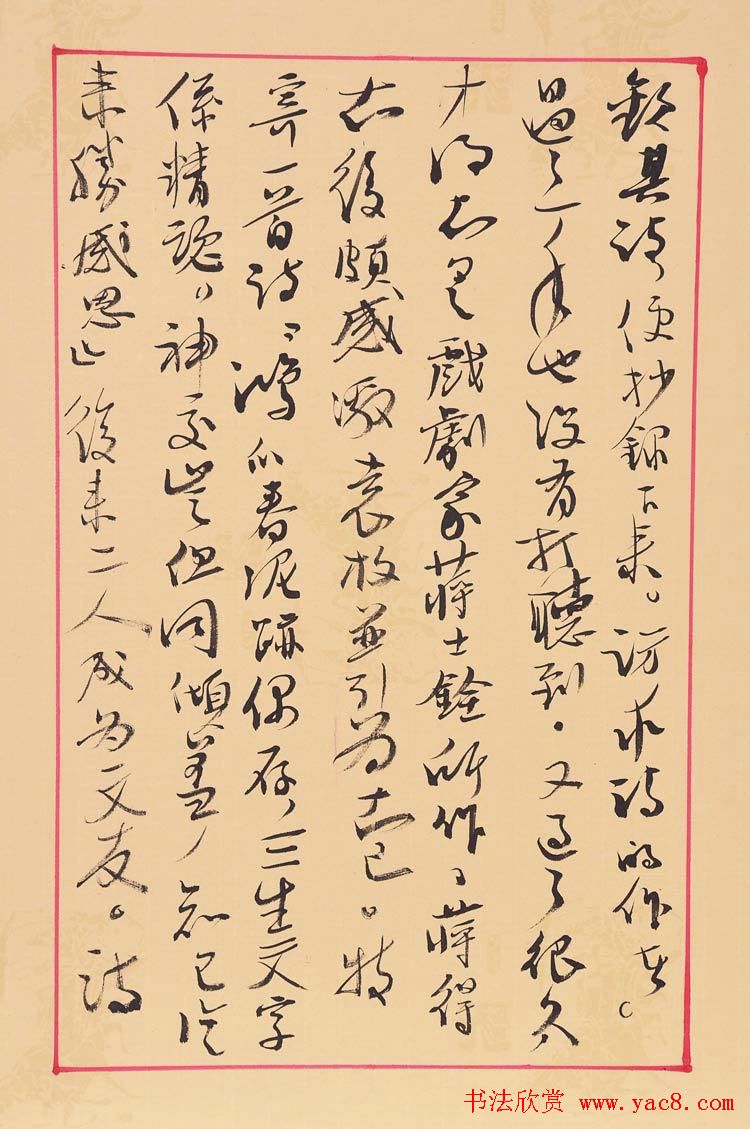 欽其詩,便抄録下来。訪求詩的作者。
過了一年也没有打聽到。又過了很久,
才得知是戲劇家蔣士銓所作,蔣得
知後頗感激袁枚並引為知己。特
寄一首詩:鴻爪春泥跡偶存,三生文字
係精魂,神交豈但同傾蓋,知己從
来勝感恩」後来二人成為文友。詩
书法欣赏 www.yac8.com